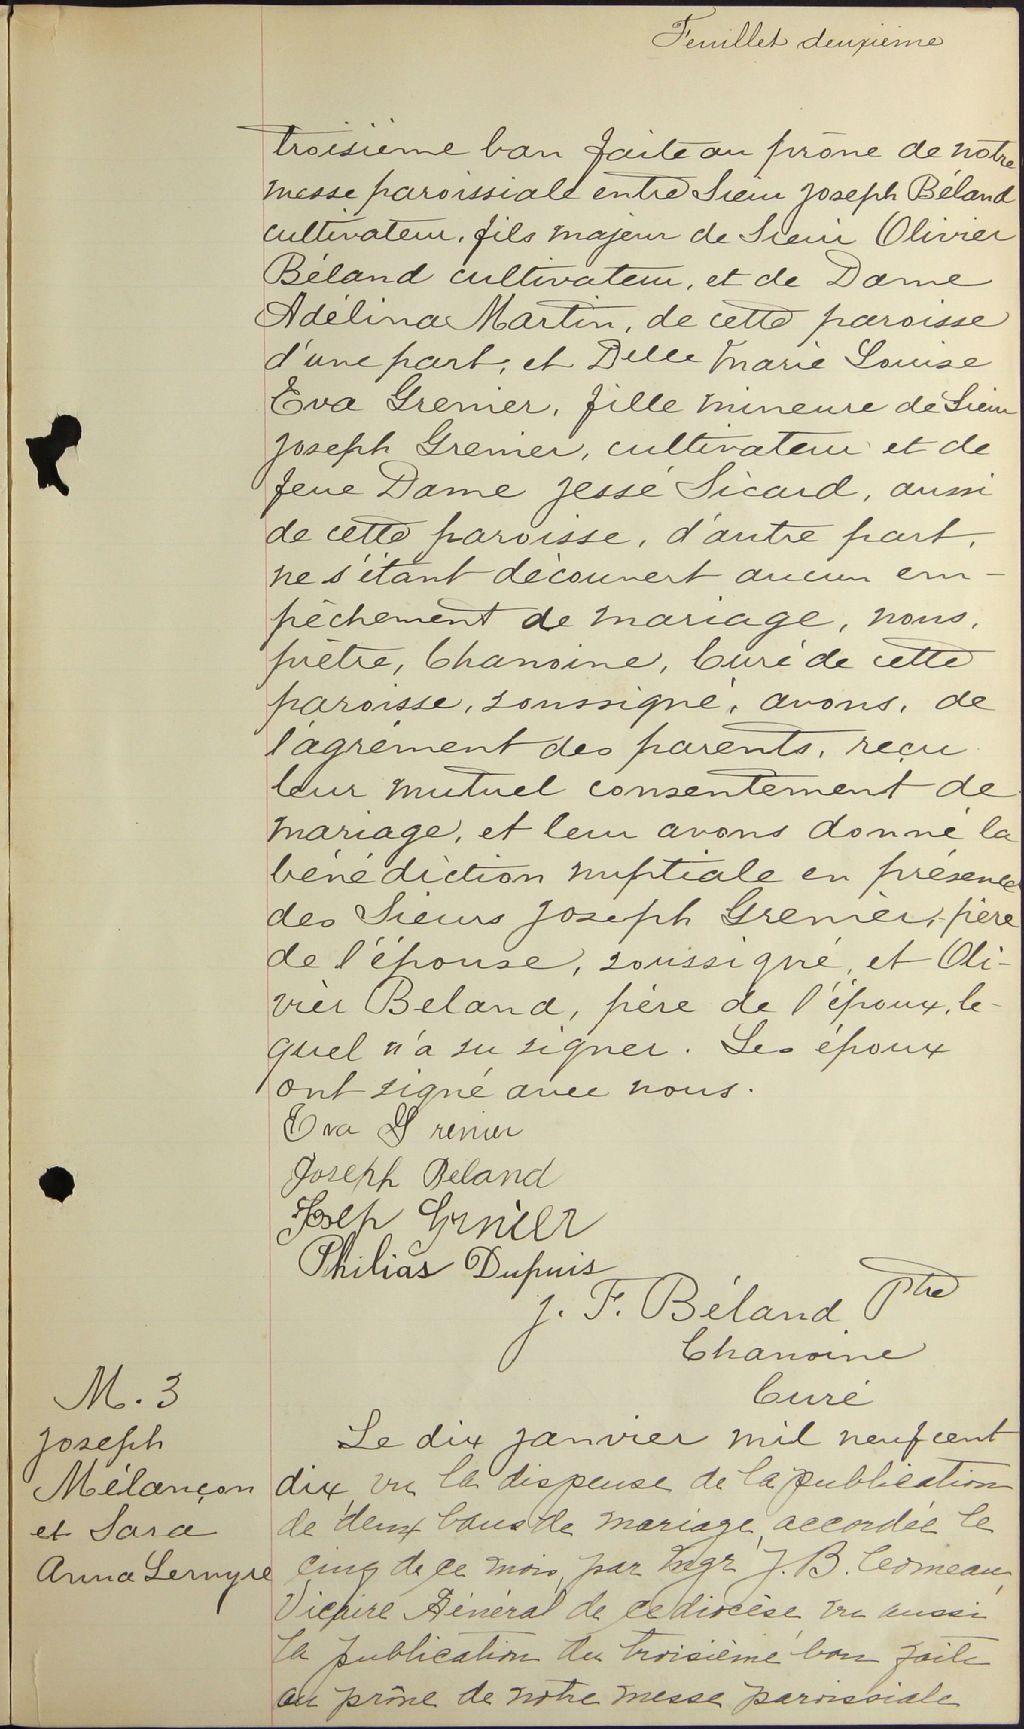 Feuillet deuxième
troisième ban faite au prône de notre
messe paroissiale entre Sieur Joseph Béland
cultivateur, fils majeur de Sieur Olivier
Béland cultivateur, et de Dame
Adélina Martin, de cette paroisse
d'une part, et Delle Marie Louise
Eva Grenier, fille mineure de Sieur
Joseph Grenier, cultivateur et de
feue Dame Jessé Sicard, aussi
de cette paroisse, d'autre part,
ne s'étant découvert aucun em-
pêchement de mariage, nous,
prêtre, Chanoine, Curé de cette
paroisse, soussigné, avons, de
l'agrément des parents, reçu
leur mutuel consentement de
mariage, et leur avons donné la
bénédiction nuptiale en présence
des Sieurs Joseph Grenier, père
de l'épouse, soussigné, et Oli-
vier Beland, père de l'époux, le-
quel n'a su signer. Les époux
ont signé avec nous.
Eva Grenier
Joseph Beland
Josep Grnier
Philias Dupuis
J. F. Béland Ptre
Chanoine
Curé
M. 3
Joseph
Mélançon
et Sara
Anna Lemyre
Le dix janvier mil neuf cent
dix, vu la dispense de la publication
de deux bans de mariage, accordée le
cinq de ce mois, par Mgr J. B. Comeau,
Vicaire Général de ce diocèse vu aussi
la publication du troisième ban faite
au prône de notre messe paroissiale